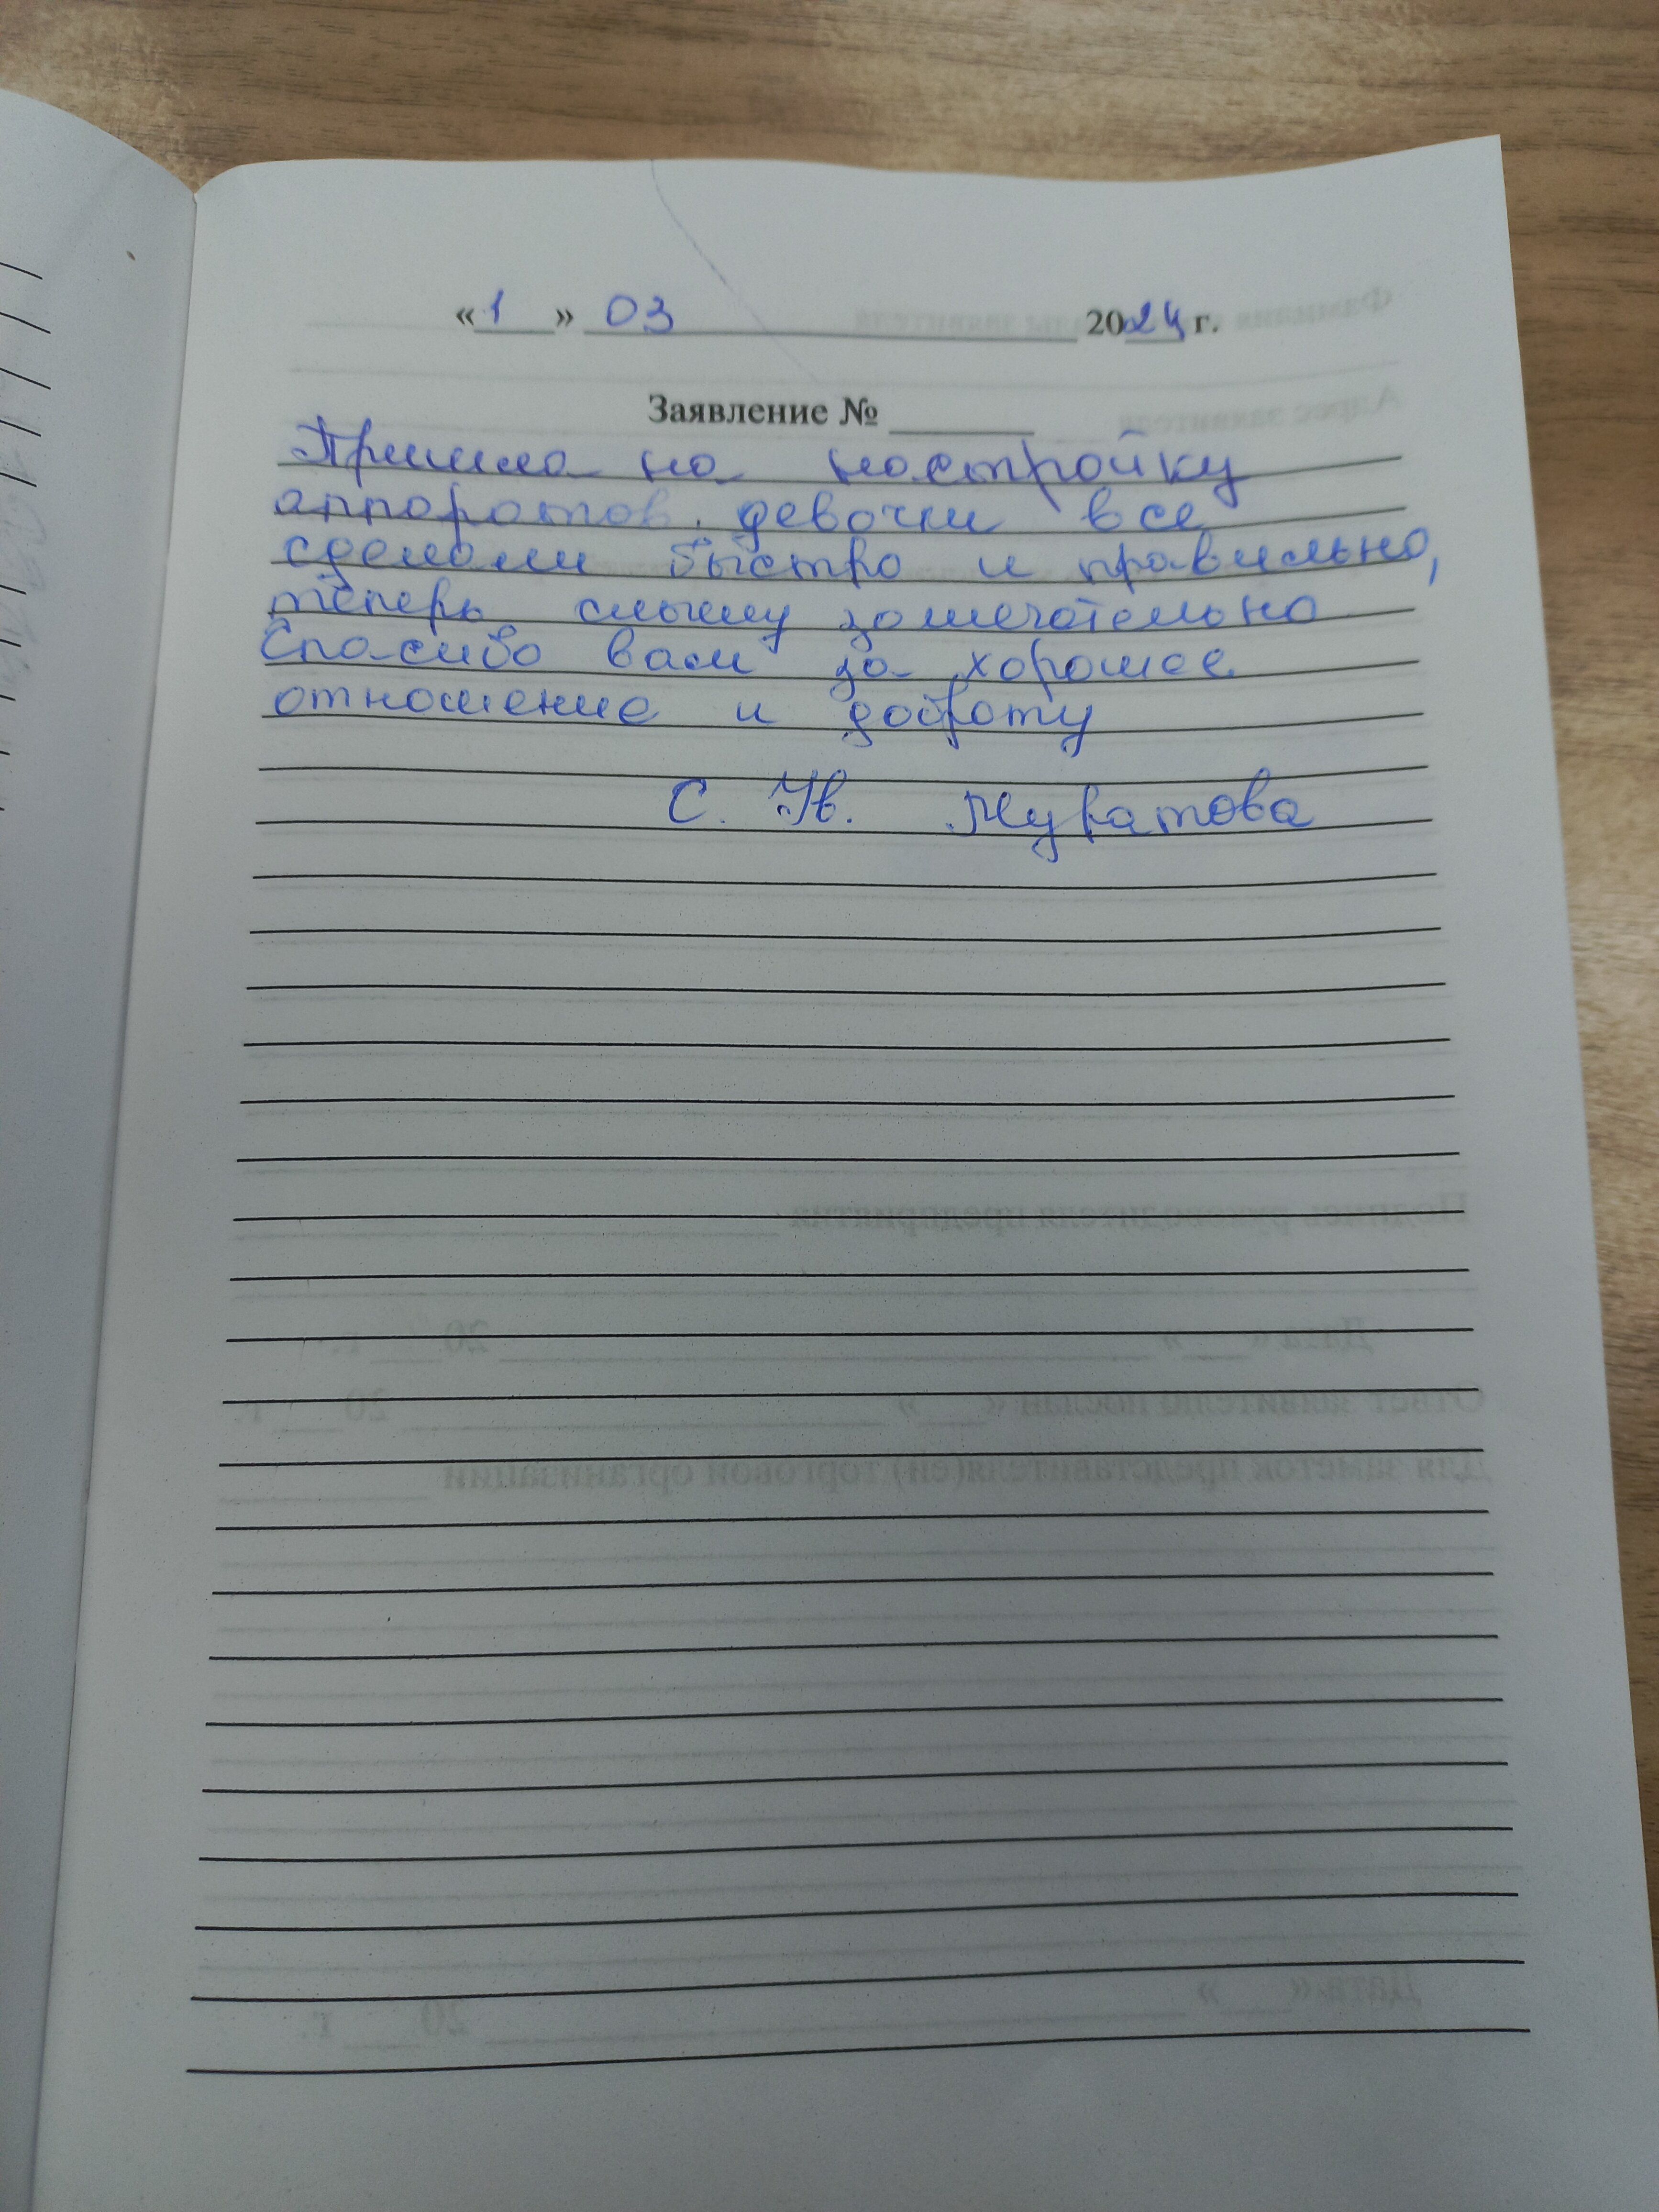 «1» 03 2024 г.
Заявление №
Пришла на настройку
аппаратов. девочки все
сделали быстро и правильно,
теперь слышу замечательно
Спасибо вам за хорошее
отношение и доброту
С. Ув. Муратова